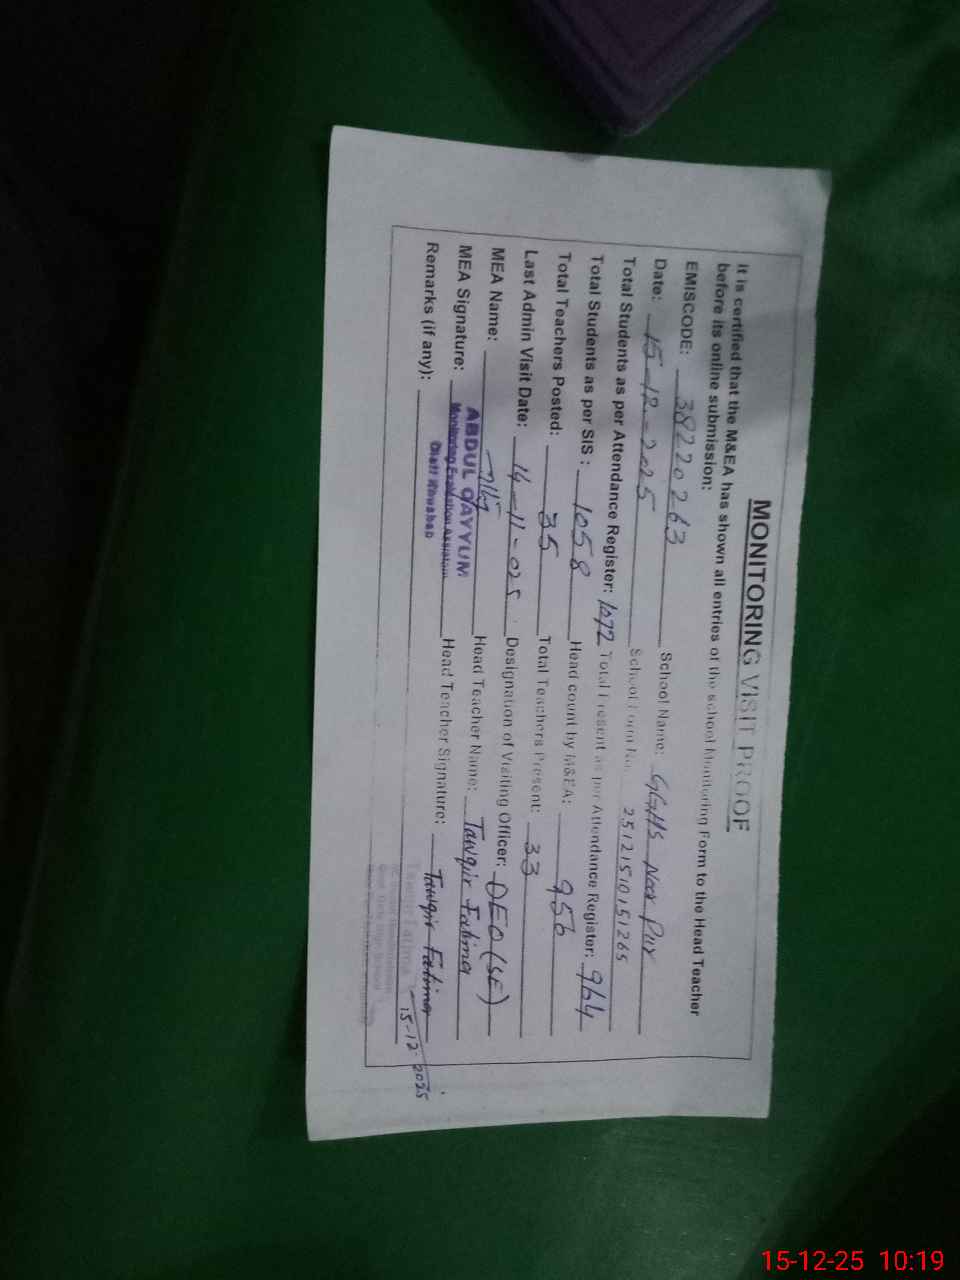 MONITORING VISIT PROOF
It is certified that the M&EA has shown all entries of the school Monitoring Form to the Head Teacher
before its online submission:
EMISCODE: 38220263 School Name: GGHS Noor Pur
Date: 15-12-2025 School Form No. 2512151015265
Total Students as per Attendance Register: 1072 Total Present as per Attendance Register: 964
Total Students as per SIS: 1058 Head count by M&EA: 956
Total Teachers Posted: 35 Total Teachers Present: 33
Last Admin Visit Date: 14-11-025 Designation of Visiting Officer: DEO (SE)
MEA Name: ABDUL QAYYUM Head Teacher Name: Tawqir Fatima
MEA Signature: Monitoring Evaluation Assistant Head Teacher Signature: Tawqir Fatima
Remarks (if any): Distt Khushab
15-12-2025
15-12-25 10:19